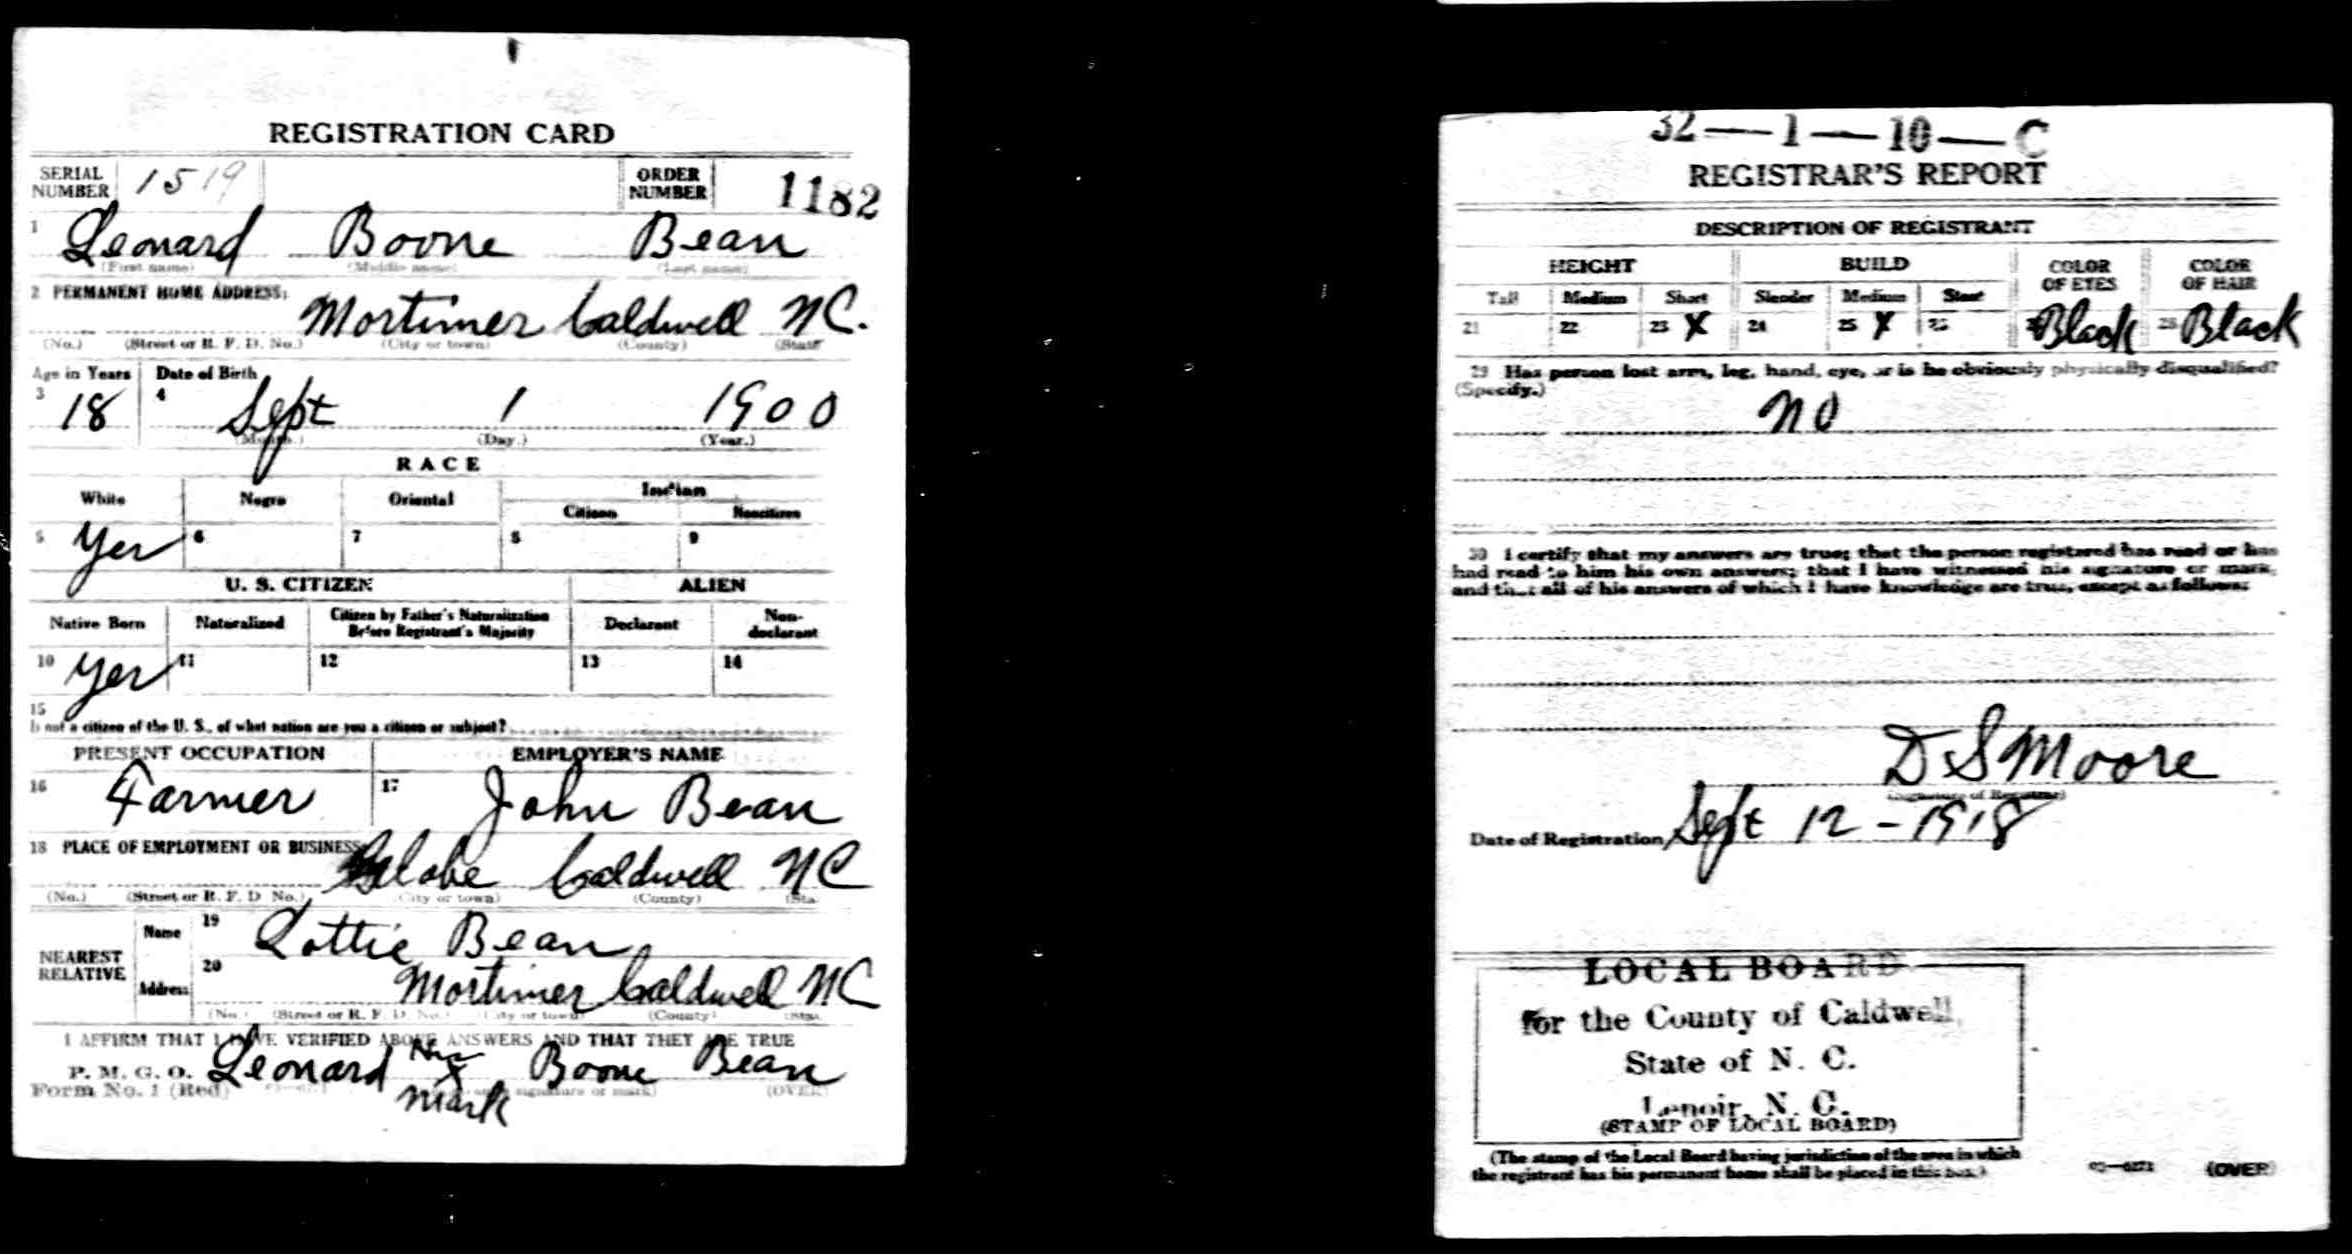 REGISTRATION CARD
SERIAL NUMBER 1519 ORDER NUMBER 1182
1 Leonard Boone Bean
(First name) (Middle name) (Last name)
2 PERMANENT HOME ADDRESS:
Mortimer Caldwell NC.
(No.) (Street or R. F. D. No.) (City or town) (County) (State)
Age in Years Date of Birth
3 18 4 Sept 1 1900
(Month.) (Day.) (Year.)
RACE
White Negro Oriental Indian
Citizen Noncitizen
5 Yes 6 7 8 9
U. S. CITIZEN ALIEN
Native Born Naturalized Citizen by Father's Naturalization Before Registrant's Majority Declarant Non-declarant
10 Yes 11 12 13 14
15
If not a citizen of the U. S., of what nation are you a citizen or subject?
PRESENT OCCUPATION EMPLOYER'S NAME
16 Farmer 17 John Bean
18 PLACE OF EMPLOYMENT OR BUSINESS:
Globe Caldwell NC
(No.) (Street or R. F. D. No.) (City or town) (County) (Sta
NEAREST RELATIVE Name 19 Lottie Bean
Address 20 Mortimer Caldwell NC
(No.) (Street or R. F. D. No.) (City or town) (County) (Sta
I AFFIRM THAT I HAVE VERIFIED ABOVE ANSWERS AND THAT THEY ARE TRUE
P. M. G. O.
Form No. 1 (Red)
Leonard His X mark Boone Bean
signature or mark) (OVER)
32—1—10—C
REGISTRAR'S REPORT
DESCRIPTION OF REGISTRANT
HEIGHT BUILD COLOR OF EYES COLOR OF HAIR
Tall Medium Short Slender Medium Stout
21 22 23 X 24 25 X 26 27 Black 28 Black
29 Has person lost arm, leg, hand, eye, or is he obviously physically disqualified?
(Specify.)
no
30 I certify that my answers are true; that the person registered has read or has
had read to him his own answers; that I have witnessed his signature or mark,
and that all of his answers of which I have knowledge are true, except as follows:
D S Moore
(Signature of Registrar)
Date of Registration Sept 12 - 1918
LOCAL BOARD
for the County of Caldwell,
State of N. C.
Lenoir, N. C.
(STAMP OF LOCAL BOARD)
(The stamp of the Local Board having jurisdiction of the area in which
the registrant has his permanent home shall be placed in this box.)
03—6171 (OVER)